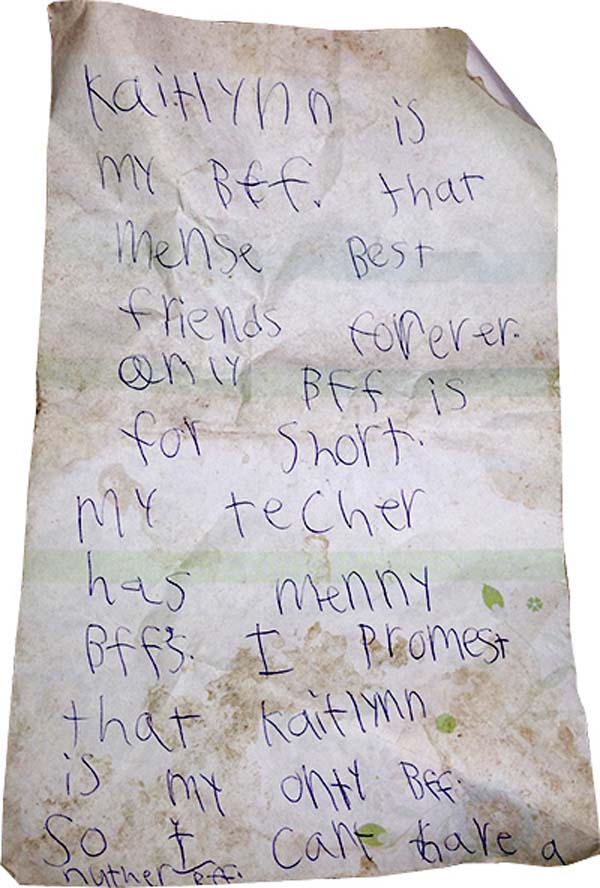 Kaitlynn is
my Bff. that
mense Best
friends forerer.
only Bff is
for short.
my techer
has menny
Bff's. I Promest
that Kaitlynn
is my only Bff.
So I can't have a
nuther Bff.